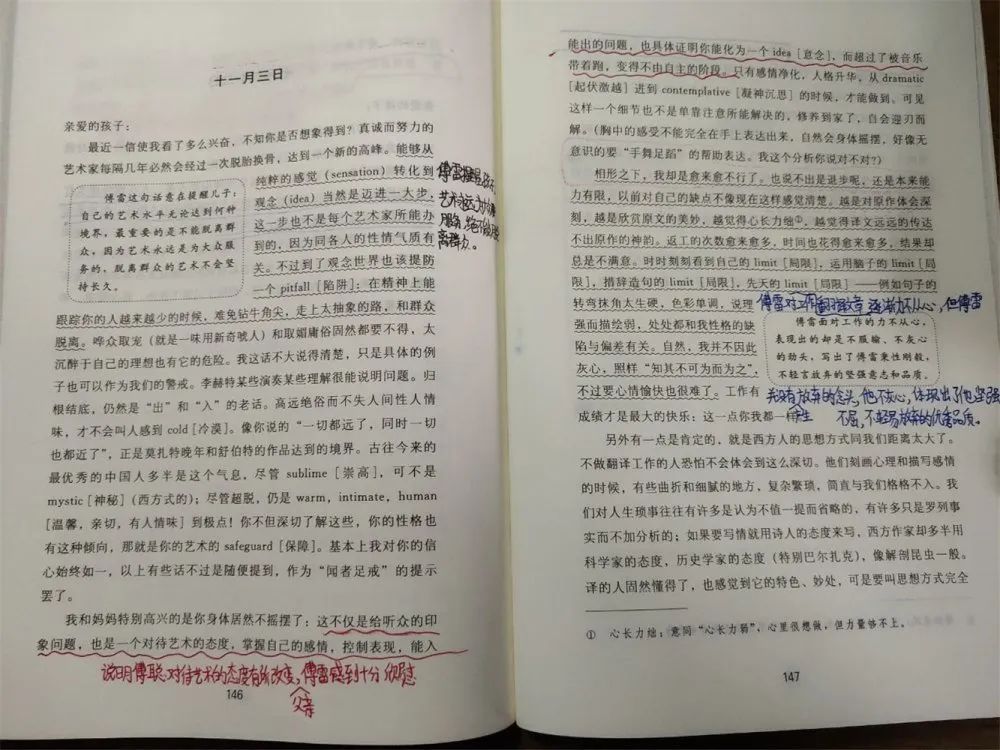 十一月三日
亲爱的孩子：
最近一信使我看了多么兴奋，不知你是否想象得到？真诚而努力的
艺术家每隔几年必然会经过一次脱胎换骨，达到一个新的高峰。能够从
纯粹的感觉（sensation）转化到
观念（idea）当然是迈进一大步，
这一步也不是每个艺术家所能办
到的，因为同各人的性情气质有
关。不过到了观念世界也该提防
一个 pitfall［陷阱］：在精神上能
傅雷这句话意在提醒儿子：
自己的艺术水平无论达到何种
境界，最重要的是不能脱离群
众，因为艺术永远是为大众服
务的，脱离群众的艺术不会坚
持长久。
傅雷提醒
艺术永远为
服务，绝不能脱
离群众。
跟踪你的人越来越少的时候，难免钻牛角尖，走上太抽象的路，和群众
脱离。哗众取宠（就是一味用新奇唬人）和取媚庸俗固然都要不得，太
沉醉于自己的理想也有它的危险。我这话不大说得清楚，只是具体的例
子也可以作为我们的警戒。李赫特某些演奏某些理解很能说明问题。归
根结底，仍然是“出”和“入”的老话。高远绝俗而不失人间性人情
味，才不会叫人感到 cold［冷漠］。像你说的“一切都远了，同时一切
也都近了”，正是莫扎特晚年和舒伯特的作品达到的境界。古往今来的
最优秀的中国人多半是这个气息，尽管 sublime［崇高］，可不是
mystic［神秘］（西方式的）；尽管超脱，仍是 warm，intimate，human
［温馨，亲切，有人情味］到极点！你不但深切了解这些，你的性格也
有这种倾向，那就是你的艺术的 safeguard［保障］。基本上我对你的信
心始终如一，以上有些话不过是随便提到，作为“闻者足戒”的提示
罢了。
我和妈妈特别高兴的是你身体居然不摇摆了：这不仅是给听众的印
象问题，也是一个对待艺术的态度，掌握自己的感情，控制表现，能入
说明傅聪对待艺术的态度有所改变，傅雷感到十分欣慰
父亲
146
能出的问题，也具体证明你能化为一个 idea［意念］，而超过了被音乐
带着跑，变得不由自主的阶段。只有感情净化，人格升华，从 dramatic
［起伏激越］进到 contemplative［凝神沉思］的时候，才能做到。可见
这样一个细节也不是单靠注意所能解决的，修养到家了，自会迎刃而
解。（胸中的感受不能完全在手上表达出来，自然会身体摇摆，好像无
意识的要“手舞足蹈”的帮助表达。我这个分析你说对不对？）
相形之下，我却是愈来愈不行了。也说不出是退步呢，还是本来能
力有限，以前对自己的缺点不像现在这样感觉清楚。越是对原作体会深
刻，越是欣赏原文的美妙，越觉得心长力绌①，越觉得译文远远的传达
不出原作的神韵。返工的次数愈来愈多，时间也花得愈来愈多，结果却
总是不满意。时时刻刻看到自己的 limit［局限］，运用脑子的 limit［局
限］，措辞造句的 limit［局限］，先天的 limit［局限］——例如句子的
转弯抹角太生硬，色彩单调，说理
强而描绘弱，处处都和我性格的缺
陷与偏差有关。自然，我并不因此
灰心，照样“知其不可为而为之”，
不过要心情愉快也很难了。工作有
成绩才是最大的快乐：这一点你我都一样。
傅雷对工作逐渐力不从心，但傅雷
傅雷面对工作的力不从心，
表现出的却是不服输、不灰心
的劲头，写出了傅雷秉性刚毅，
不轻言放弃的坚强意志和品质。
并没有放弃的念头，他不灰心，体现出了他坚强
不屈，不轻易放弃的优秀品质。
另外有一点是肯定的，就是西方人的思想方式同我们距离太大了。
不做翻译工作的人恐怕不会体会到这么深切。他们刻画心理和描写感情
的时候，有些曲折和细腻的地方，复杂繁琐，简直与我们格格不入。我
们对人生琐事往往有许多是认为不值一提而省略的，有许多只是罗列事
实而不加分析的；如果要写情就用诗人的态度来写，西方作家却多半用
科学家的态度，历史学家的态度（特别巴尔扎克），像解剖昆虫一般。
译的人固然懂得了，也感觉到它的特色、妙处，可是要叫思想方式完全
① 心长力绌：意同“心长力弱”，心里很想做，但力量够不上。
147